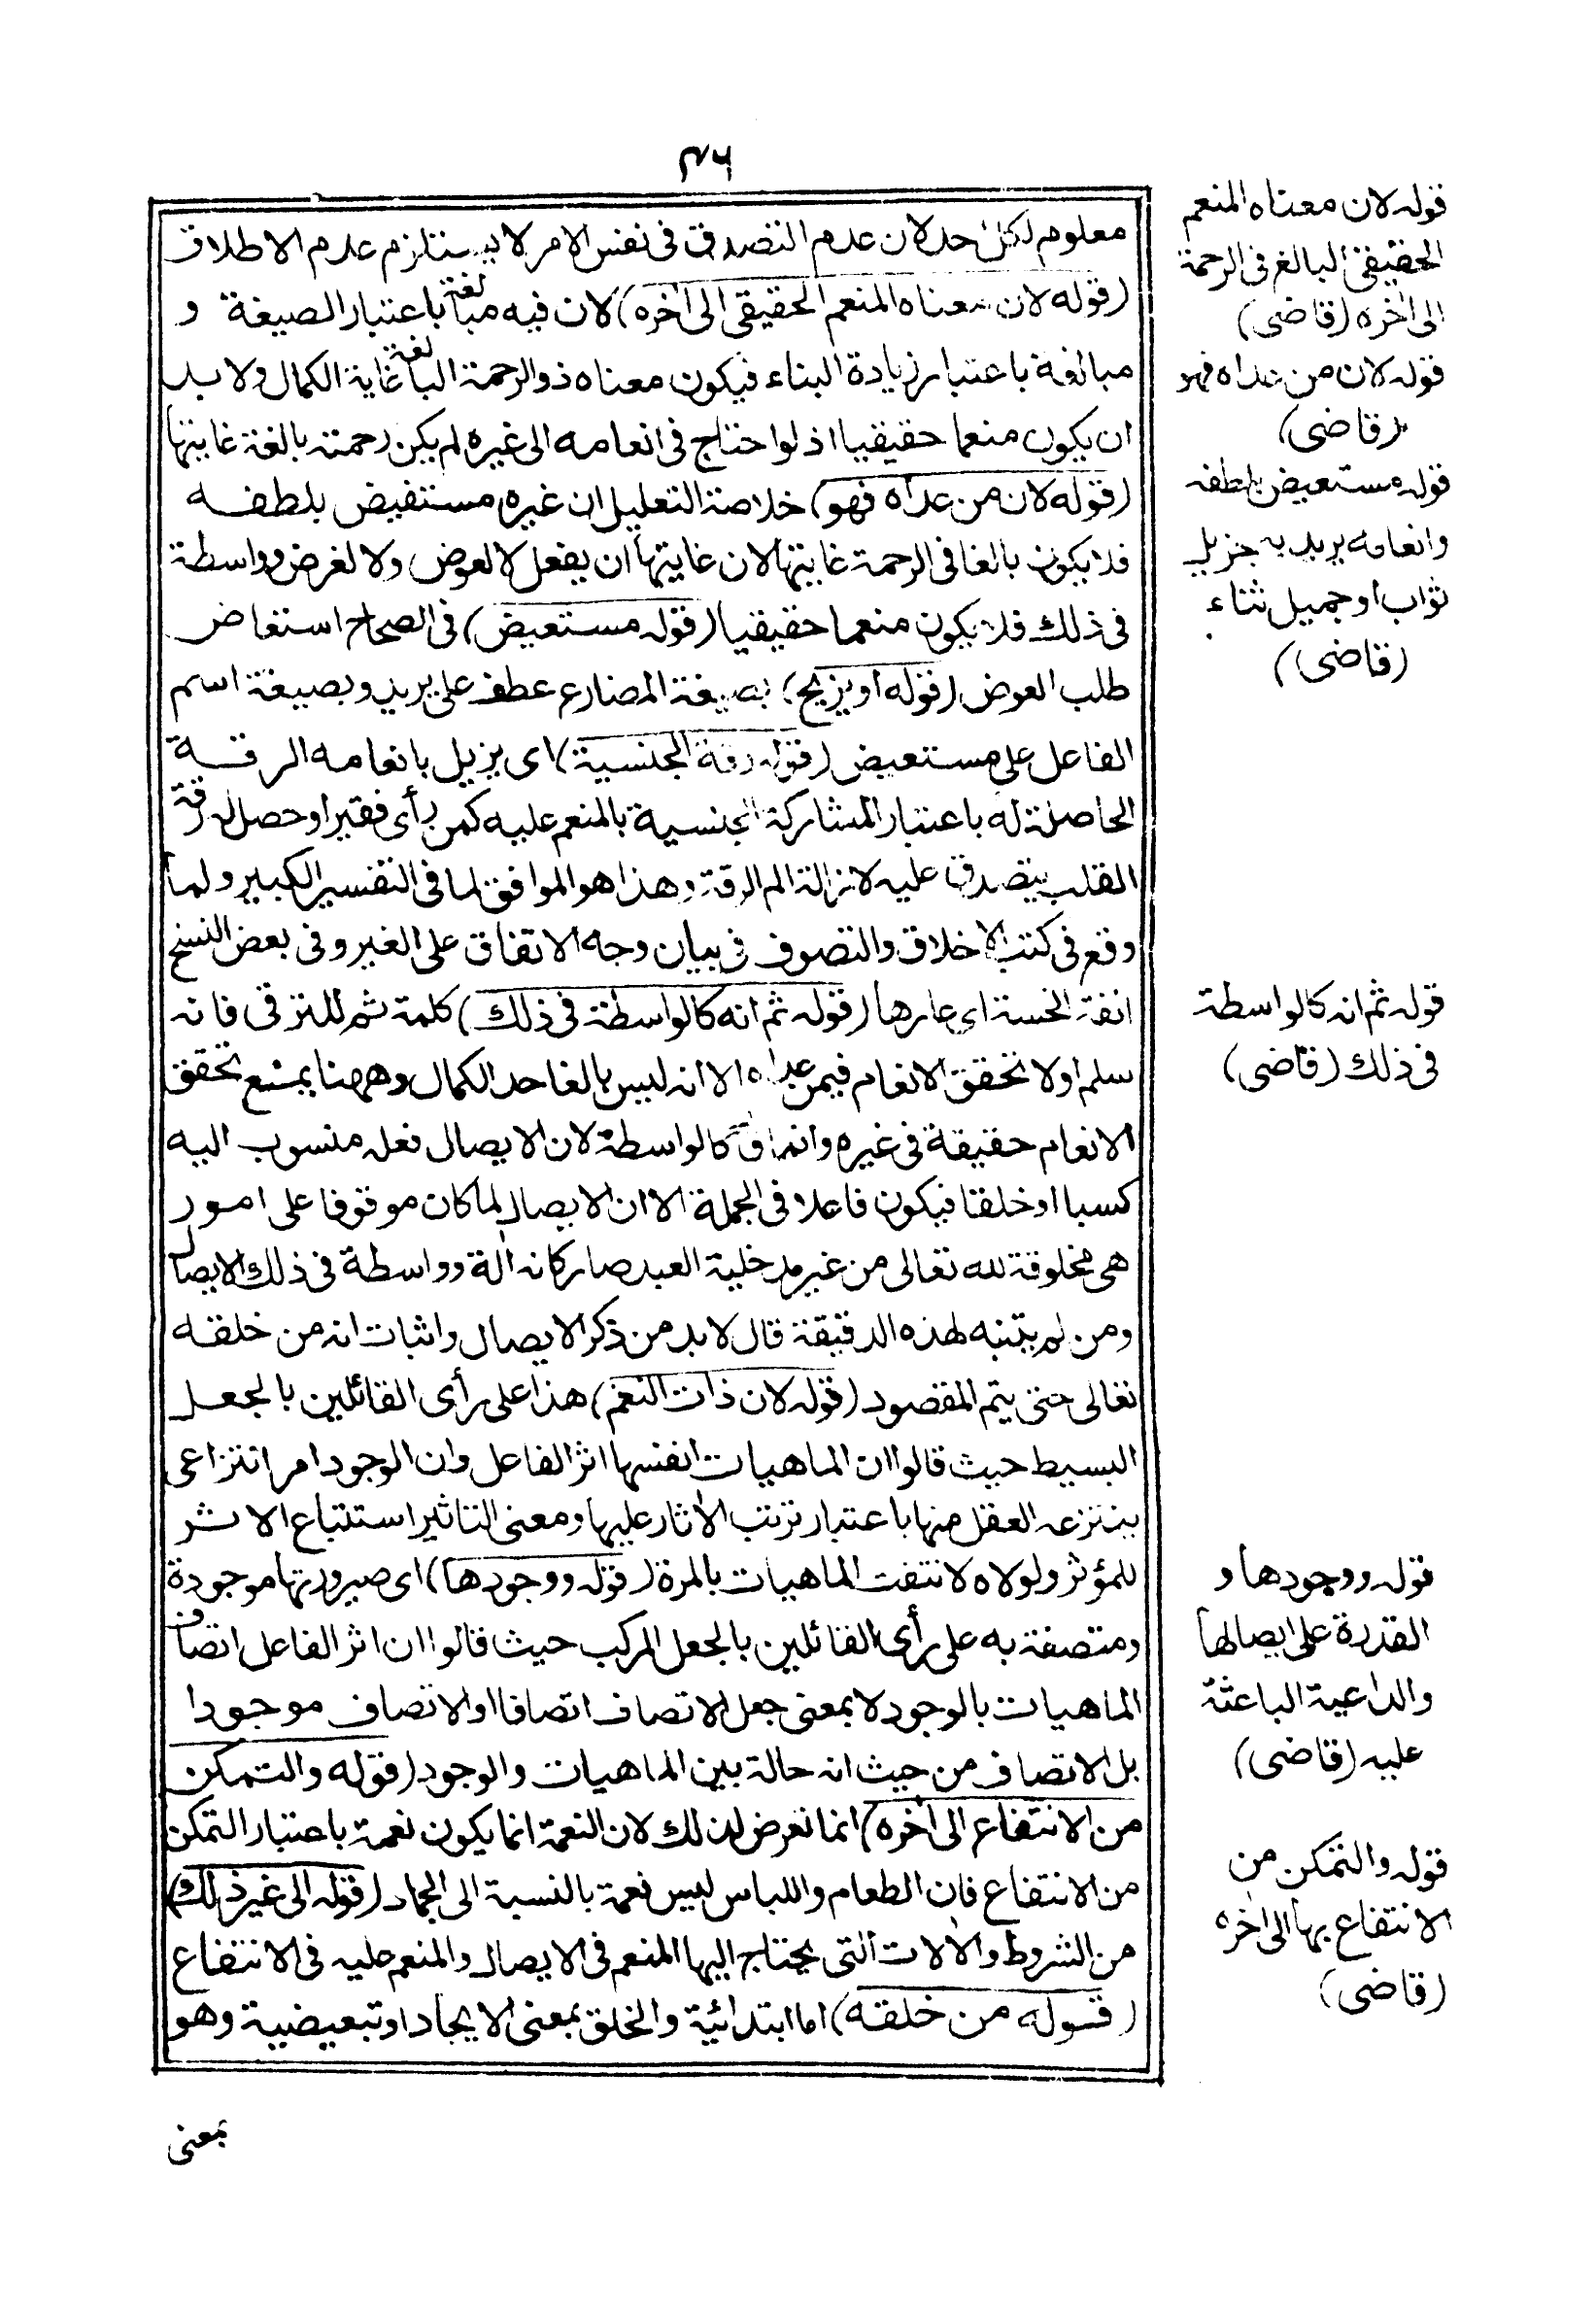 ٣٦
معلوم لكل احد لان عدم التصدق فى نفس الامر لا يستلزم عدم الاطلاق
(قوله لان معناه المنعم الحقيقى الى اخره) لان فيه مبالغة باعتبار الصيغة و
مبالغة باعتبار زيادة البناء فيكون معناه ذو الرحمة البالغة غاية الكمال ولا بد
ان يكون منعما حقيقيا اذ لو احتاج فى انعامه الى غيره لم يكن رحمته بالغة غايتها
(قوله لان من عداه فهو) خلاصة التعليل ان غيره مستفيض بلطفه
فلا يكون بالغا فى الرحمة غايتها لان غايتها ان يفعل لا لعوض ولا لغرض وواسطة
فى ذلك فلا يكون منعما حقيقيا (قوله مستعيض) فى الصحاح استعاض
طلب العوض (قوله او يزيح) بصيغة المضارع عطف على يريد وبصيغة اسم
الفاعل على مستعيض (قوله رقة الجنسية) اى يزيل بانعامه الرقة
الحاصلة له باعتبار المشاركة الجنسية بالمنعم عليه كمن رأى فقيرا وحصل له رقة
القلب يتصدق عليه لازالة الم الرقة وهذا هو الموافق لما فى التفسير الكبير ولما
وقع فى كتب الاخلاق والتصوف فى بيان وجه الاتفاق على الغير وفى بعض النسخ
انفة الخسة اى عارها (قوله ثم انه كالواسطة فى ذلك) كلمة ثم للترقى فانه
سلم اولا تحقق الانعام فيمن عداه الا انه ليس بالغا حد الكمال وههنا يمنع تحقق
الانعام حقيقة فى غيره وانما قال كالواسطة لان الايصال فعله منسوب اليه
كسبا او خلقا فيكون فاعلا فى الجملة الا ان الايصال لما كان موقوفا على امور
هى مخلوقة لله تعالى من غير مدخلية العبد صار كانه آلة وواسطة فى ذلك الايصال
ومن لم يتنبه لهذه الدقيقة قال لا بد من ذكر الايصال واثبات انه من خلقه
تعالى حتى يتم المقصود (قوله لان ذات النعم) هذا على رأى القائلين بالجعل
البسيط حيث قالوا ان الماهيات انفسها اثر الفاعل وان الوجود امر انتزاعى
ينتزعه العقل منها باعتبار ترتب الآثار عليها ومعنى التاثير استتباع الاثر
للمؤثر ولولاه لانتفت الماهيات بالمرة (قوله ووجودها) اى صيرورتها موجودة
ومتصفة به على رأى القائلين بالجعل المركب حيث قالوا ان اثر الفاعل اتصاف
الماهيات بالوجود لا بمعنى جعل الاتصاف اتصافا او الاتصاف موجودا
بل الاتصاف من حيث انه حالة بين الماهيات والوجود (قوله والتمكن
من الانتفاع الى اخره) انما تعرض لذلك لان النعمة انما يكون نعمة باعتبار التمكن
من الانتفاع فان الطعام واللباس ليس نعمة بالنسبة الى الجماد (قوله الى غير ذلك)
من الشروط والآلات التى يحتاج اليها المنعم فى الايصال والمنعم عليه فى الانتفاع
(قوله من خلقه) اما ابتدائية والخلق بمعنى الايجاد او تبعيضية وهو
بمعنى
قوله لان معناه المنعم
الحقيقى البالغ فى الرحمة
الى اخره (قاضى)
قوله لان من عداه فهو
(قاضى)
قوله مستعيض بلطفه
وانعامه يريد به جزيل
ثواب او جميل ثناء
(قاضى)
قوله ثم انه كالواسطة
فى ذلك (قاضى)
قوله ووجودها و
القدرة على ايصالها
والداعية الباعثة
عليه (قاضى)
قوله والتمكن من
الانتفاع بها الى اخره
(قاضى)